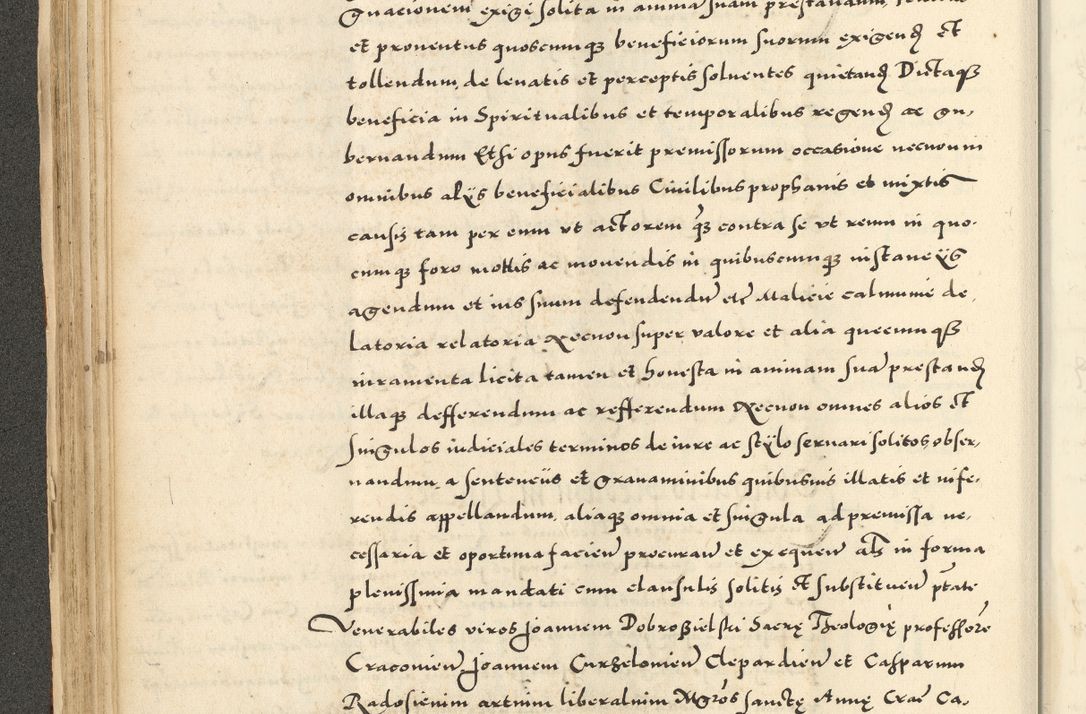 gnacionem exigi solita in animā suam prestandum
et proventus quoscumq; beneficiorum suorum exigend et
tollendum, de levatis et perceptis solventes quietand Dictaq;
beneficia in Spiritualibus et temporalibus regend ac gu,
bernandum Et si opus fuerit premissorum occasione necnon in
omnibus alÿs beneficialibus Civilibus prophanis et mixtis
causis tam per eum ut actorem q; contra se ut reum in quo,
cumq; foro motis ac movendis in quibuscumq; instancÿs
agendum et ius suum defendendū etc Malicie calumnie de,
latoria relatoria Necnon super valore et alia quecumq;
iuramenta licita tamen et honesta in animam suā prestand
illaq; defferendum ac refferendum Necnon omnes alios et
singulos iudiciales terminos de iure ac stÿlo servari solitos, obser,
vandum, a sentencÿs et gravaminibus quibusvis illatis et infe,
rendis appellandum, aliaq; omnia et singula ad premissa ne,
cessaria et oportuna facien procuran et exequen als in forma
plenissima mandati cum clausulis solitis et substituen ptate
Venerabiles viros Joannem Dobrosielski Sacrę Theologię professorē
Cracovien Joannem Curzelovien Clepardien et Casparum
Radosicium artium liberalium Mgros sanctę Annę Crac Ca,